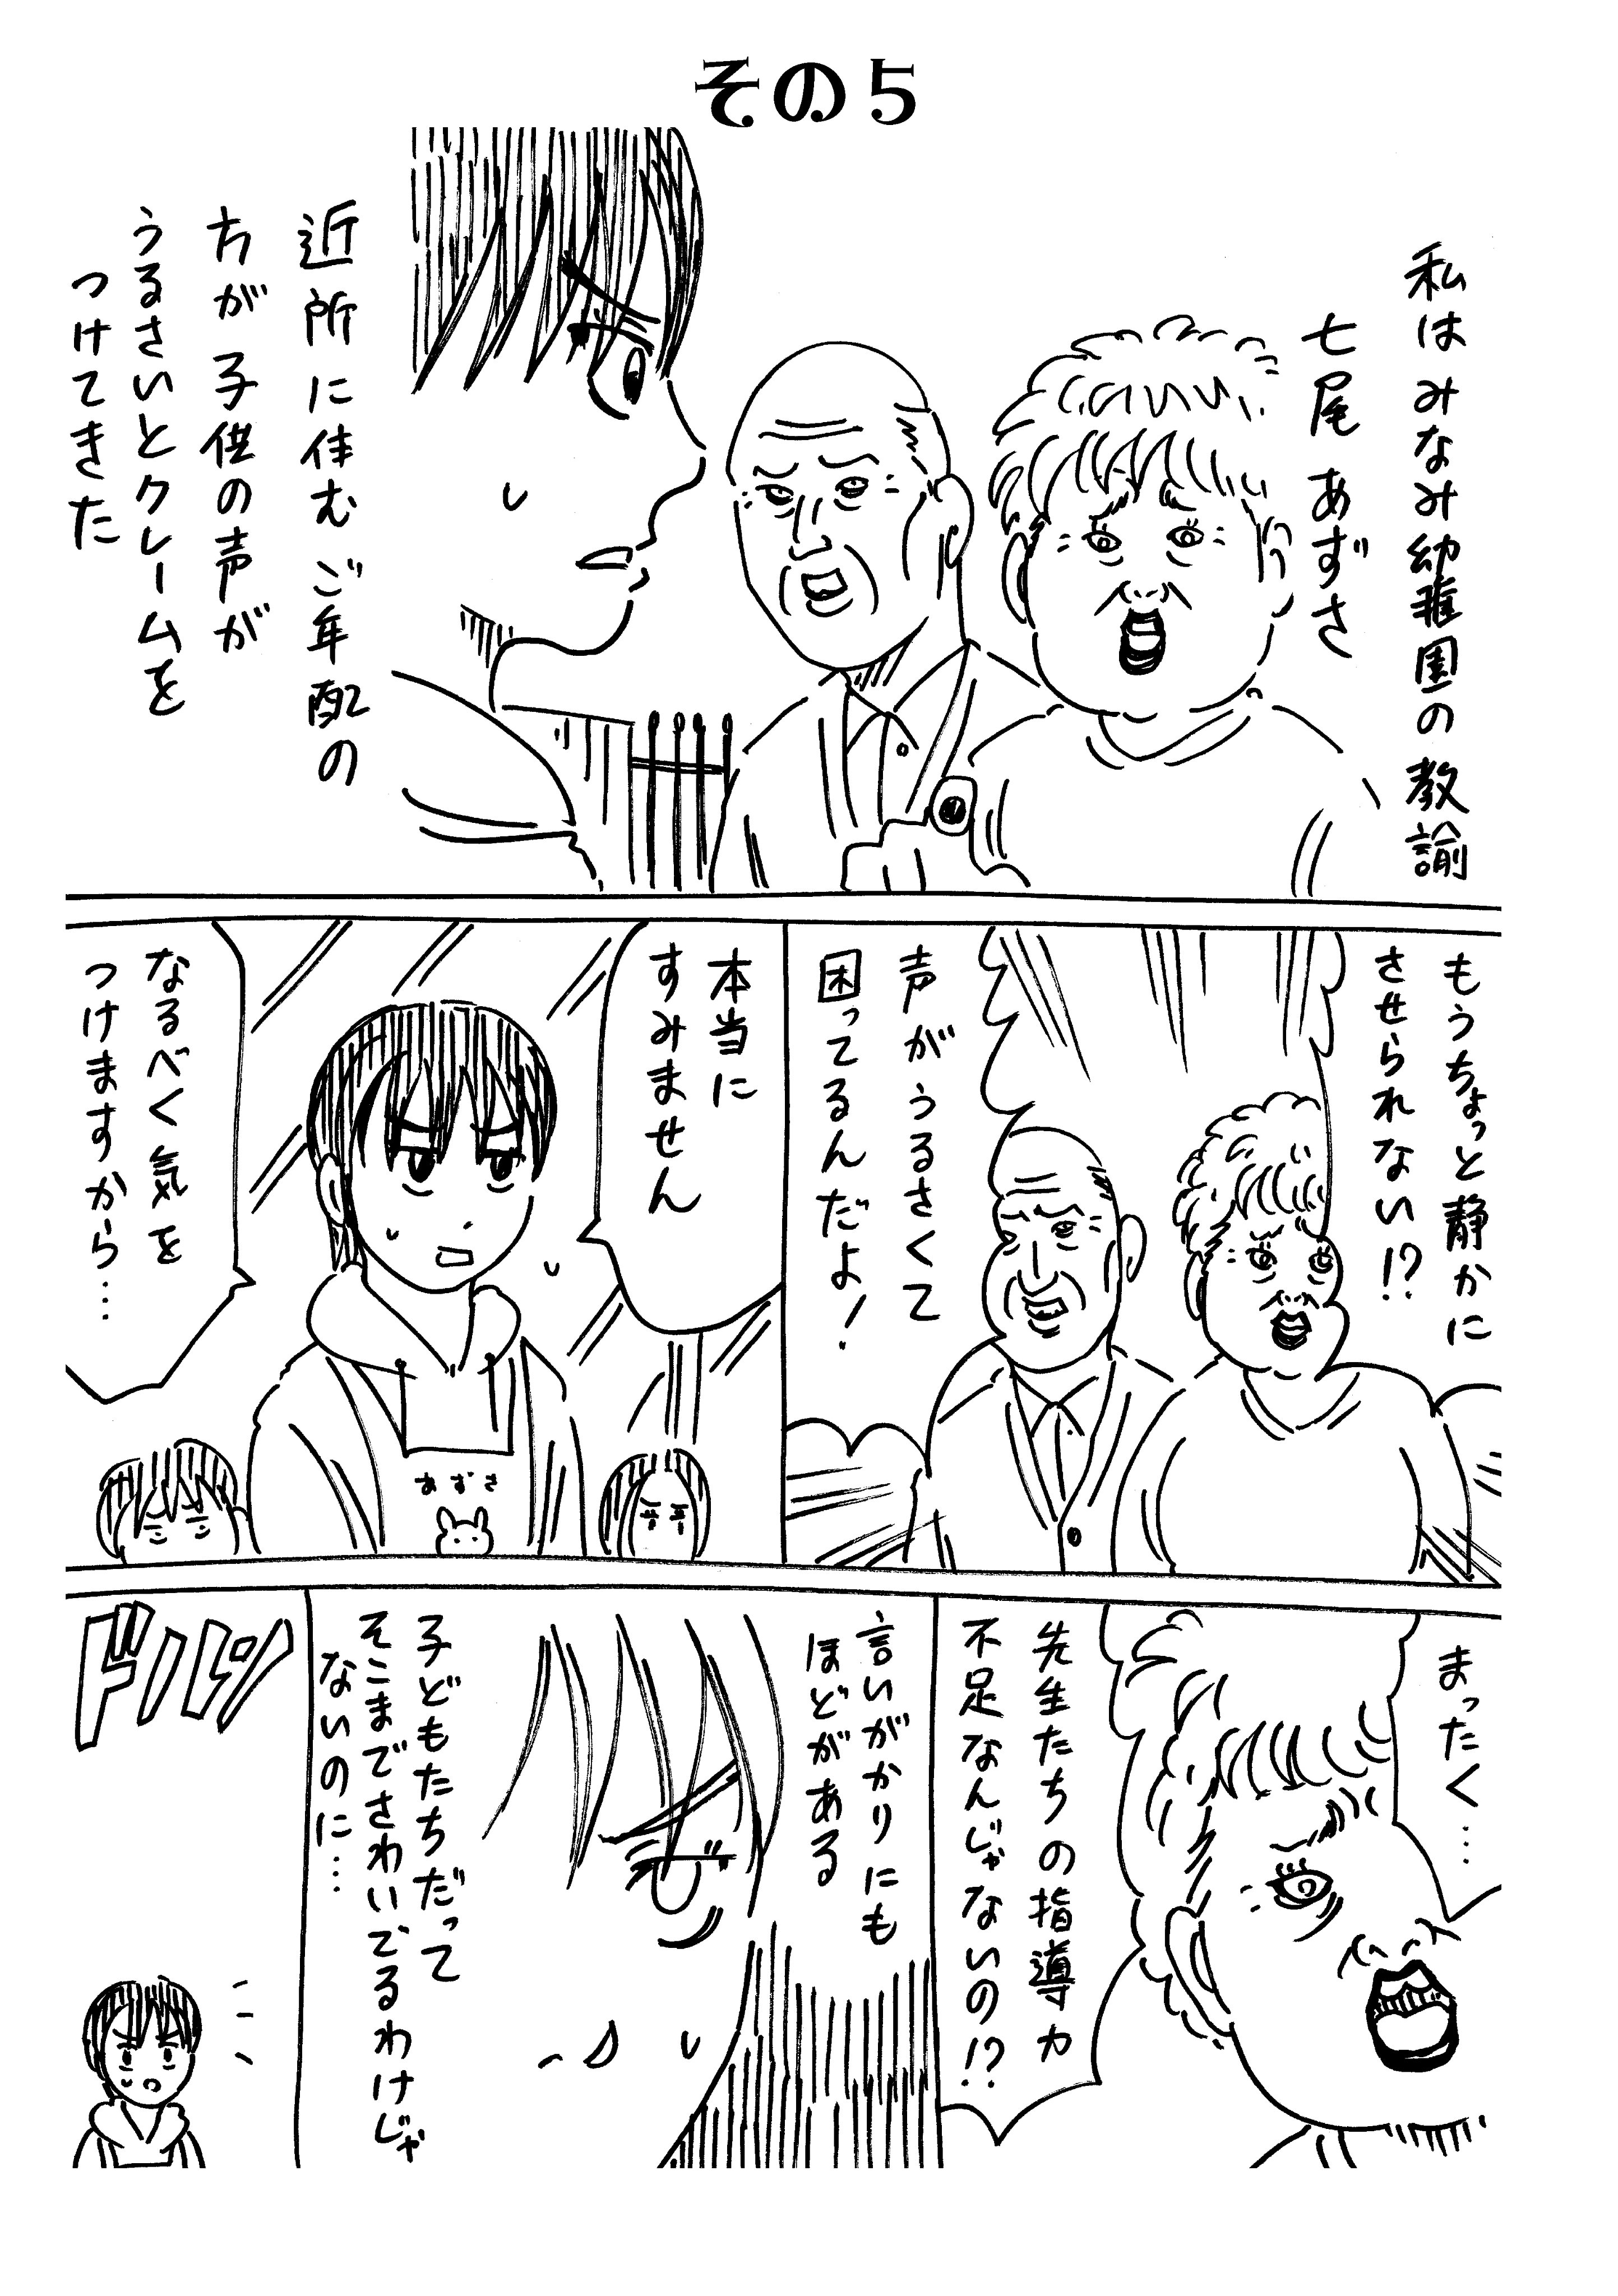 その5
私はみなみ幼稚園の教諭
七尾あずさ
近所に住むご年配の
方が子供の声が
うるさいとクレームを
つけてきた
もうちょっと静かに
させられない!?
声がうるさくて
困ってるんだよ!
本当に
すみません
なるべく気を
つけますから…
あずさ
まったく…
先生たちの指導力
不足なんじゃないの!?
言いがかりにも
ほどがある
子どもたちだって
そこまでさわいでるわけじゃ
ないのに…
ドルルン